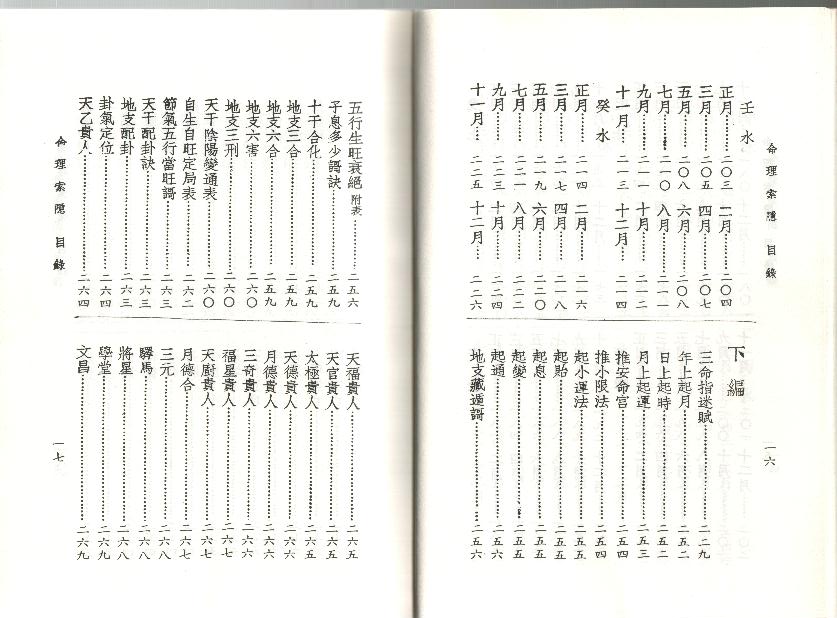 命理索隱 目錄 一六
壬水
正月……二〇三 二月……二〇四
三月……二〇五 四月……二〇七
五月……二〇八 六月……二〇八
七月……二一〇 八月……二一〇
九月……二一一 十月……二一二
十一月……二一三 十二月……二一四
癸水
正月……二一四 二月……二一六
三月……二一七 四月……二一八
五月……二一九 六月……二二〇
七月……二二一 八月……二二二
九月……二二三 十月……二二四
十一月……二二五 十二月……二二六
下編
三命指迷賦……二二九
年上起月……二五二
日上起時……二五二
月上起運……二五三
推安命宮……二五四
推小限法……二五四
起小運法……二五五
起胎……二五五
起息……二五五
起變……二五五
起通……二五六
地支藏遁謌……二五六
五行生旺衰絕 附表……二五六
子息多少謌訣……二五九
十干合化……二五九
地支三合……二五九
地支六合……二五九
地支六害……二六〇
地支三刑……二六〇
天干陰陽變通表……二六〇
自生自旺定局表……二六二
節氣五行當旺謌……二六三
天干配卦訣……二六三
地支配卦……二六三
卦氣定位……二六四
天乙貴人……二六四
天福貴人……二六五
天官貴人……二六五
太極貴人……二六五
天德貴人……二六六
月德貴人……二六六
三奇貴人……二六六
福星貴人……二六七
天廚貴人……二六七
月德合……二六七
三元……二六八
驛馬……二六八
將星……二六八
學堂……二六九
文昌……二六九
命理索隱 目錄 一七